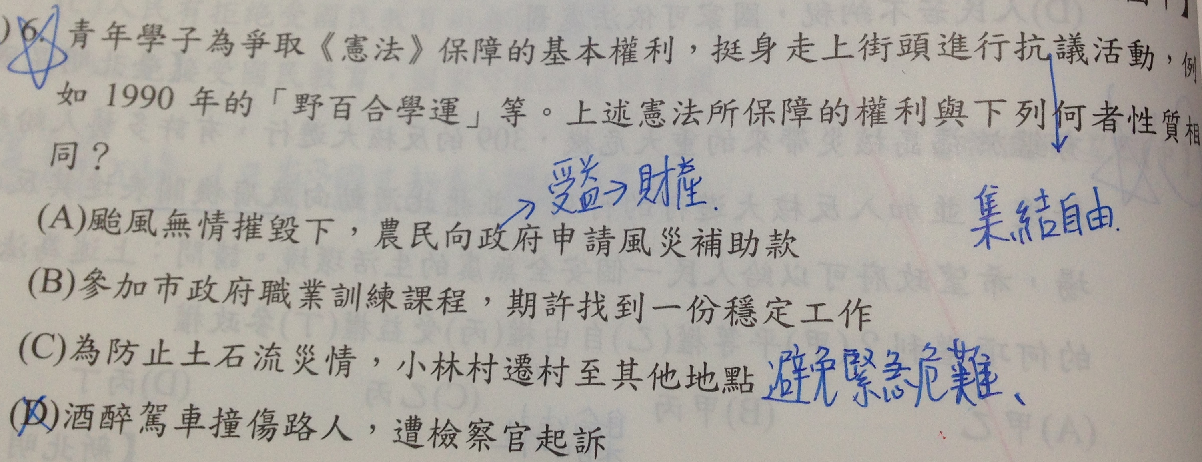 )6.青年學子為爭取《憲法》保障的基本權利，挺身走上街頭進行抗議活動，例
如 1990 年的「野百合學運」等。上述憲法所保障的權利與下列何者性質相
同？
受益→財產.
集結自由.
(A)颱風無情摧毀下，農民向政府申請風災補助款
(B)參加市政府職業訓練課程，期許找到一份穩定工作
(C)為防止土石流災情，小林村遷村至其他地點 避免緊急危難、
(D)酒醉駕車撞傷路人，遭檢察官起訴